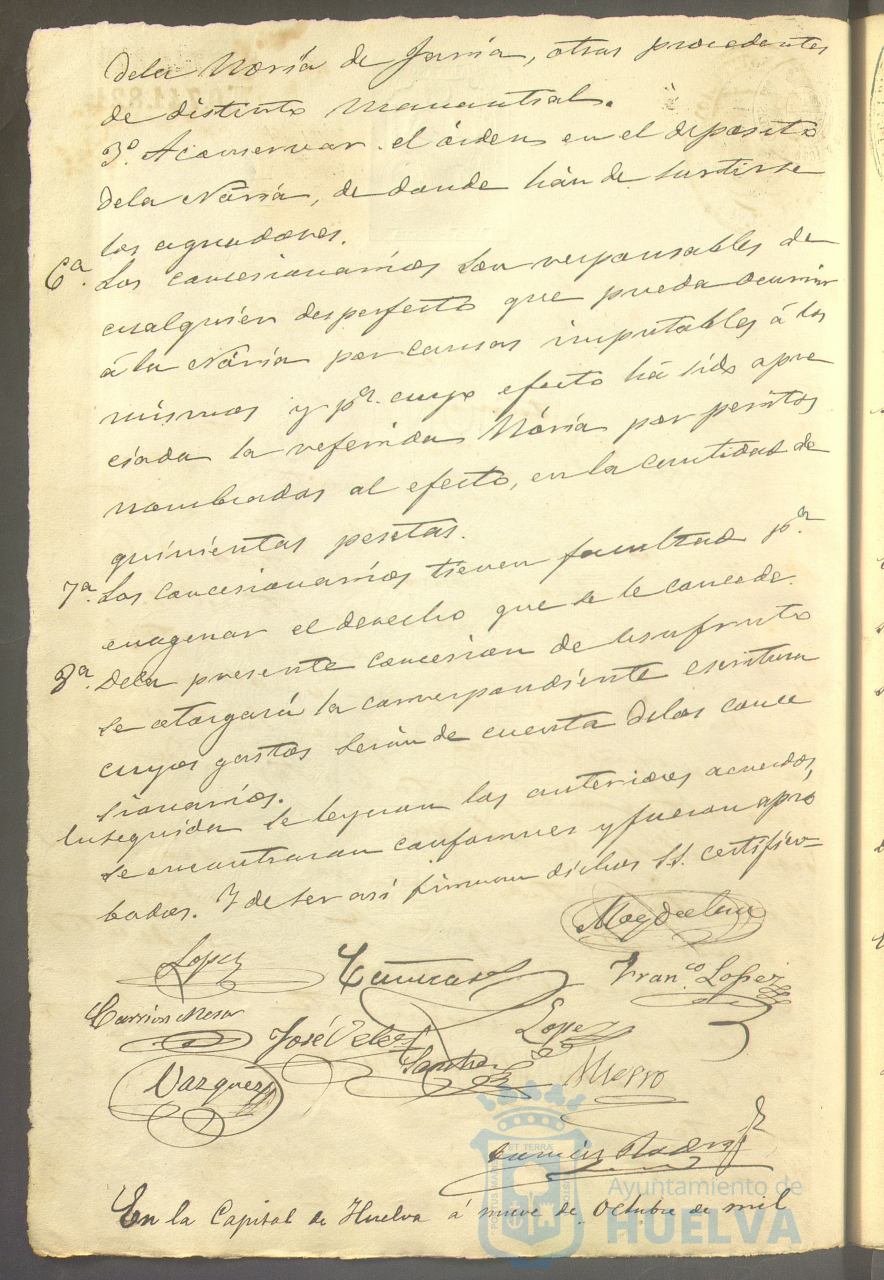 dela Noria de Jarria, otras procedentes
de distinto manantial.
3º. A conservar el órden en el deposito
dela Nória, de donde hán de surtirse
los aguadores.
6ª. Los concesionarios son responsables de
cualquier desperfecto que pueda ocurrir
á la Nória por causas imputables á los
mismos y pª. cuyo efecto há sido apre
ciada la referida Nória por peritos
nombrados al efecto, en la cantidad de
quinientas pesetas.
7ª. Los concesionarios tienen facultad pª.
enagenar el derecho que se le concede.
8ª. Dela presente concesion de usufruto
se otorgará la correspondiente escritura
cuyos gastos serán de cuenta delos conce
sionarios.
Enseguida se leyeron los anteriores acuerdos,
se encontraron conformes y fueron apro
bados. Y de ser así firman dichos SS. certifico=
Magdalena
Lopez
Franco. Lopez
Carrion Mesa
José Velez
Lopez
Vazquez
Sanchez
En la Capital de Huelva á nueve de Octubre de mil
PORTUS MARIS ET TERRAE CUSTODIA
Ayuntamiento de
HUELVA